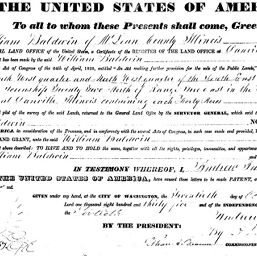 THE UNITED STATES OF AMER
To all to whom these Presents shall come, Gree
liam Baldwin of McLean County Illinois
AL LAND OFFICE of the United States, a Certificate of the REGISTER OF THE LAND OFFICE at Danvill
has been made by the said William Baldwin
Act of Congress of the 24th of April, 1820, entitled "An Act making further provision for the sale of the Public Lands,"
West quarter and North West quarter of the South East
Township Twenty two North of Range two East in the
at Danville Illinois containing eighty Acres
plat of the survey of the said Lands, returned to the General Land Office by the SURVEYOR GENERAL, which said
dwin NO
ERICA, in consideration of the Premises, and in conformity with the several Acts of Congress, in such case made and provided, H
AND GRANT, unto the said William Baldwin
above described: TO HAVE AND TO HOLD the same, together with all the rights, privileges, immunities, and appurtenan
liam Baldwin and
IN TESTIMONY WHEREOF, I, Andrew
THE UNITED STATES OF AMERICA, have caused these Letters to be made PATENT,
GIVEN under my hand, at the CITY OF WASHINGTON, the
Lord one thousand eight hundred and thirty five and of the INDEPENDENCE
the Sixtieth
BY THE PRESIDENT:
By
COMMISSIONER